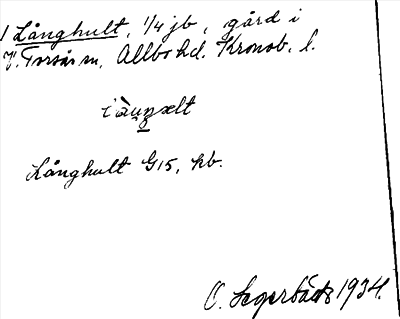 1 Långhult, 1/4 jb, gård i
V. Torsås sn, Allbo hd. Kronob. l.
Långhult G15, kb.
O. Segerbäck 1934.